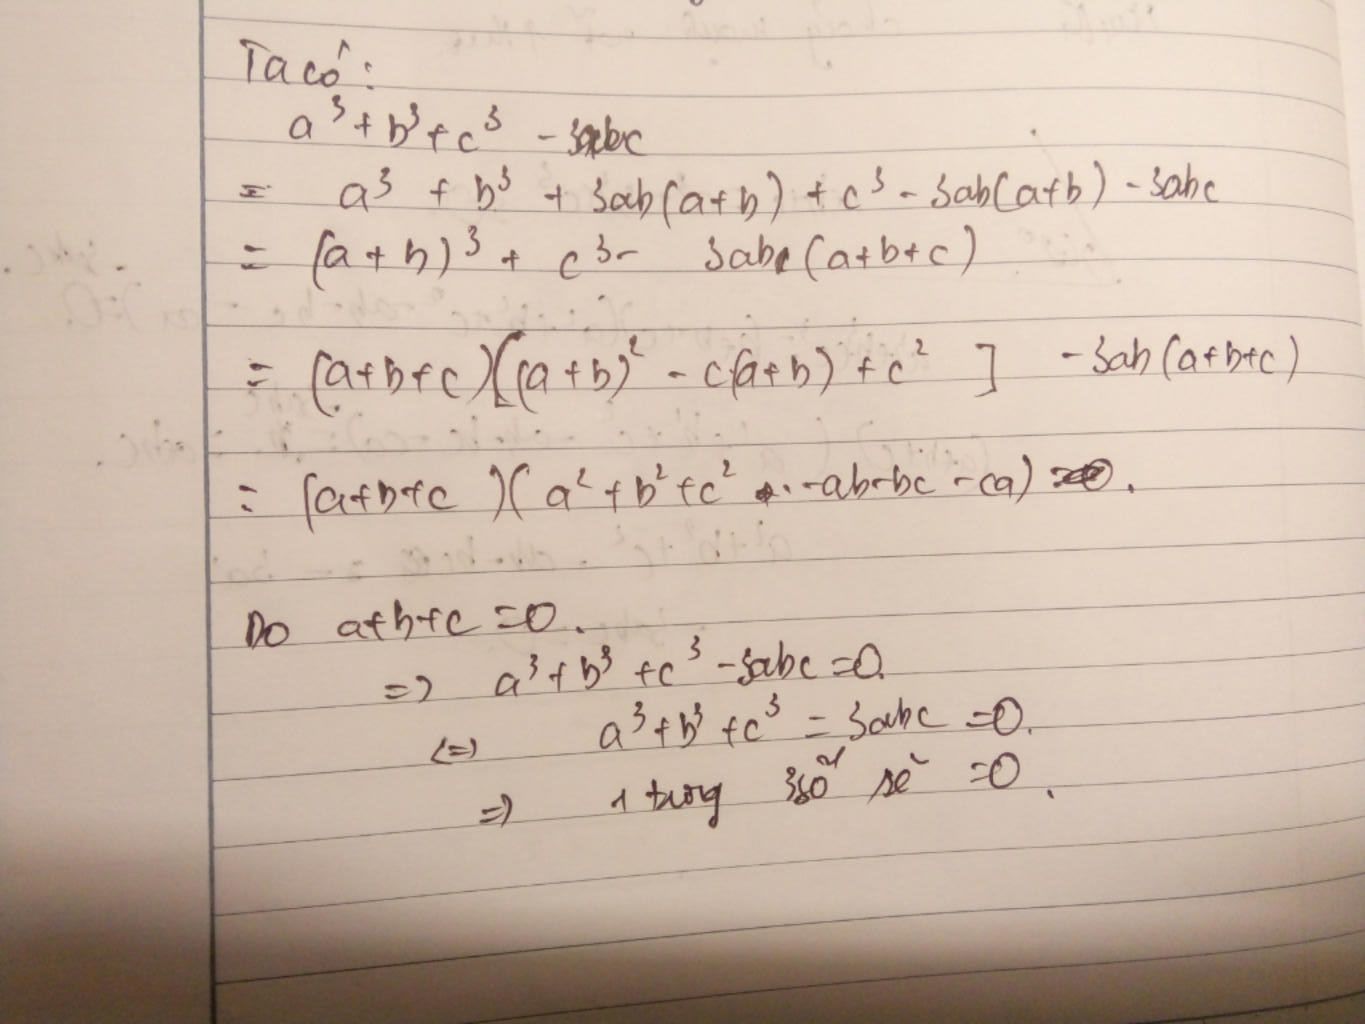 Ta có:
a³ + b³ + c³ - 3abc
= a³ + b³ + 3ab(a+b) + c³ - 3ab(a+b) - 3abc
= (a+b)³ + c³ - 3ab(a+b+c)
= (a+b+c)[(a+b)² - c(a+b) + c²] - 3ab(a+b+c)
= (a+b+c)(a² + b² + c² - ab - bc - ca).
Do a+b+c = 0.
=> a³ + b³ + c³ - 3abc = 0.
<=> a³ + b³ + c³ = 3abc = 0.
=> 1 trong 3 số sẽ = 0.